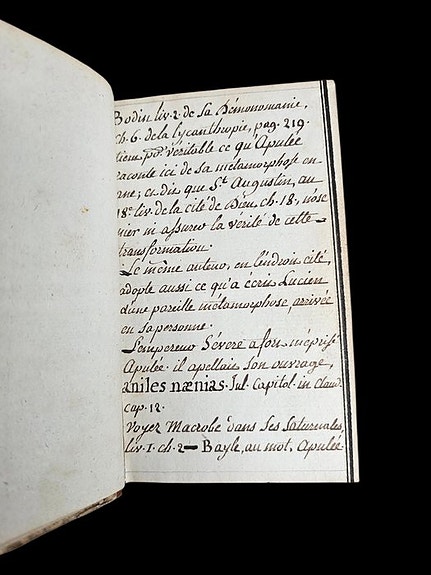 Bodin liv. 2. de sa Démonomanie,
ch. 6. de la lycanthropie, pag. 219.
tient po.r véritable ce qu'Apulée
raconte ici de sa métamorphose en
ane; et dit que St. Augustin, au
18e liv. de la cité de Dieu ch. 18, n'ose
nier ni assurer la vérité de cette
transformation.
Le même auteur, en l'endroit cité,
adopte aussi ce qu'a ecrit Lucien
d'une pareille métamorphose, arrivée
en sa personne.
L'empereur Sévere a fort méprisé
Apulée. il apelloit son ouvrage,
aniles nænias. Jul. Capitol. in Claud.
cap. 12.
Voyez Macrobe dans ses Saturnales,
liv. 1. ch. 2 — Bayle, au mot, Apulée